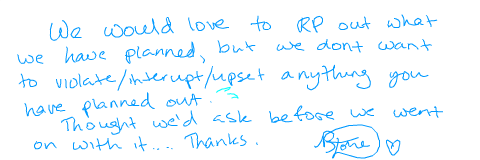 We would love to RP out what
we have planned, but we dont want
to violate/interupt/upset anything you
have planned out.
Thought we'd ask before we went
on with it.... Thanks.